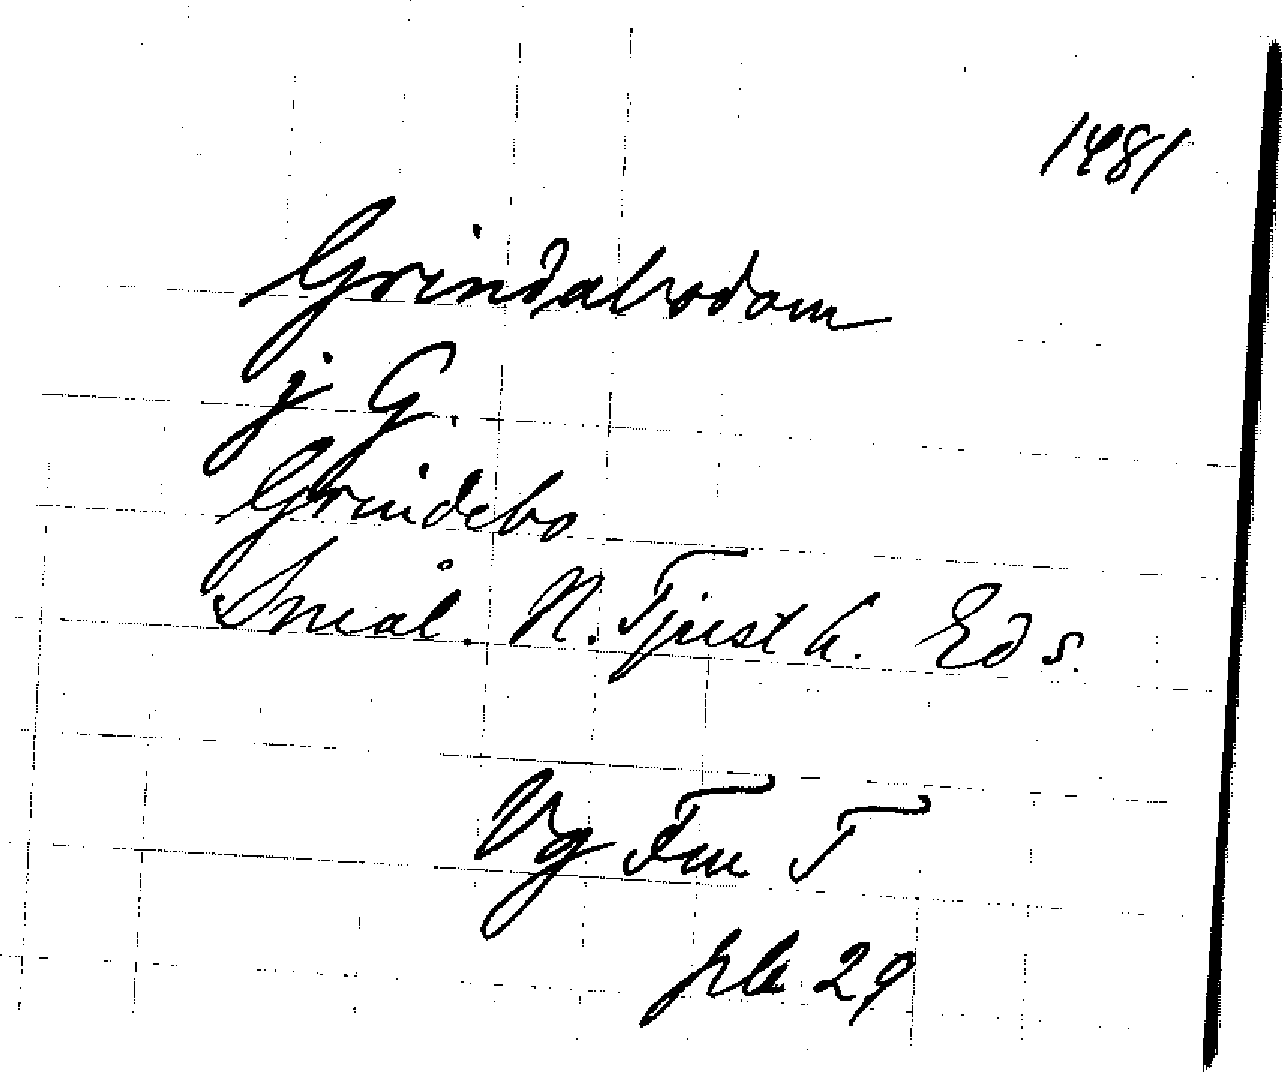 1481
Grindalsdom
j G.
Grindebo
Smål. N. Tjust h. Eds
Vg Fm T
pk 29